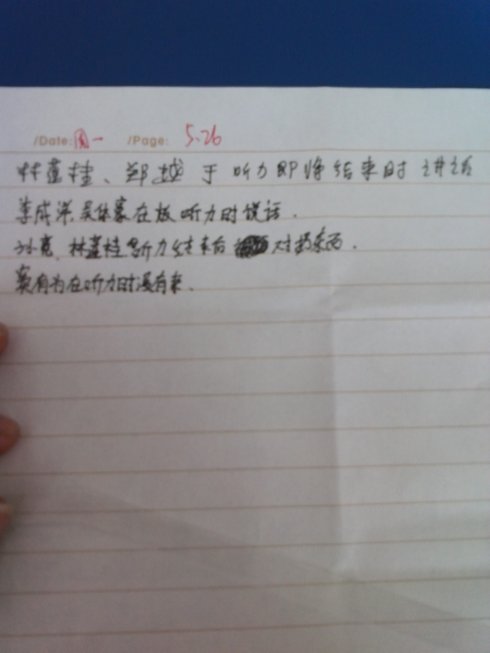 /Date: 周一 /Page: 5.26
林蓝桂、郑越于听力即将结束时讲话
李成洋 在放听力时说话.
孙亮,林蓝桂 听力结束后 对扔东西.
有为在听力时没有来.